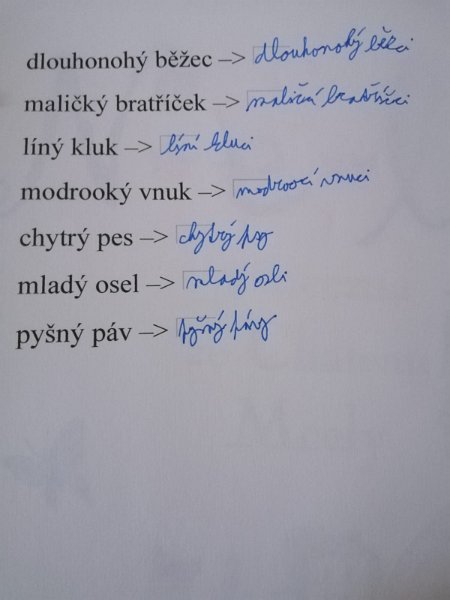 dlouhonohý běžec –> dlouhonohý běžci
maličký bratříček –> maličcí bratříčci
líný kluk –> líní kluci
modrooký vnuk –> modroocí vnuci
chytrý pes –> chytrý psy
mladý osel –> mladý osli
pyšný páv –> pyšný pávy